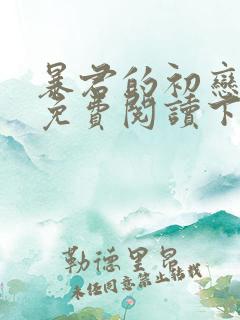 暴君的初戀
免費閱讀下
勒德里昂
未經同意禁止轉載